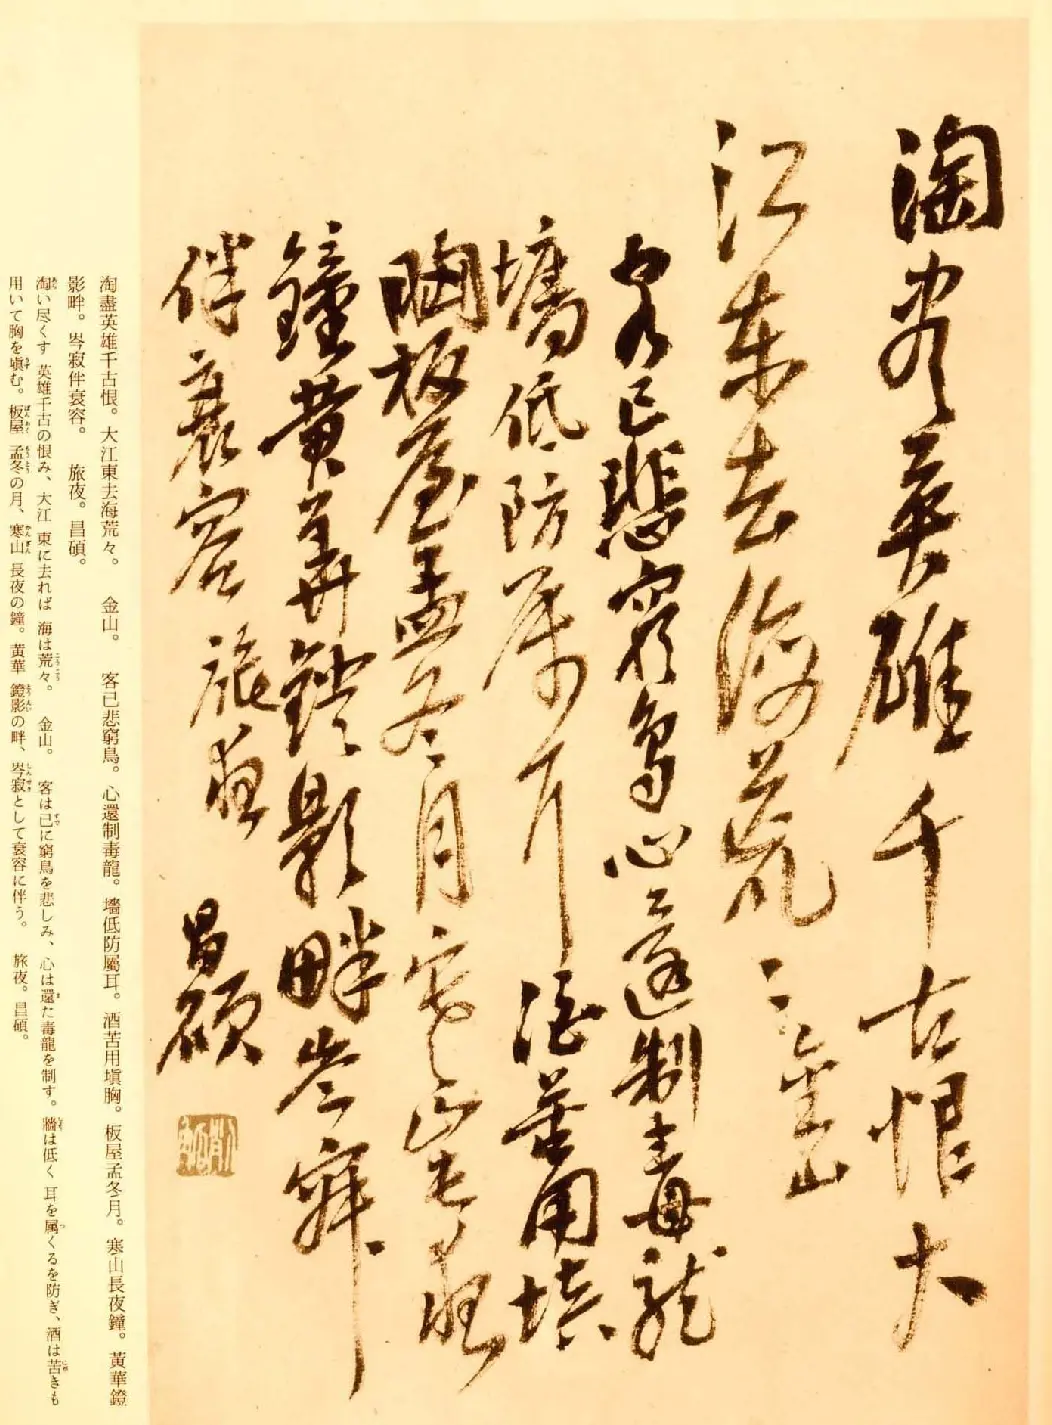 淘盡英雄千古恨大
江東去海荒々金山
客已悲窮鳥心還制毒龍
墻低防属耳酒苦用填
胸板屋孟冬月寒山長夜
鐘黄華鐙影畔岑寂
伴衰容旅夜
昌碩
淘盡英雄千古恨。大江東去海荒々。　金山。　客已悲窮鳥。心還制毒龍。墻低防屬耳。酒苦用塡胸。板屋孟冬月。寒山長夜鐘。黃華鐙
影畔。岑寂伴衰容。　旅夜。昌碩。
淘い尽くす 英雄千古の恨み、大江 東に去れば 海は荒々。　金山。　客は已に窮鳥を悲しみ、心は還た毒龍を制す。牆は低く 耳を属くるを防ぎ、酒は苦きも
用いて胸を塡む。板屋 孟冬の月、寒山 長夜の鐘。黃華 鐙影の畔、岑寂として衰容に伴う。　旅夜。昌碩。